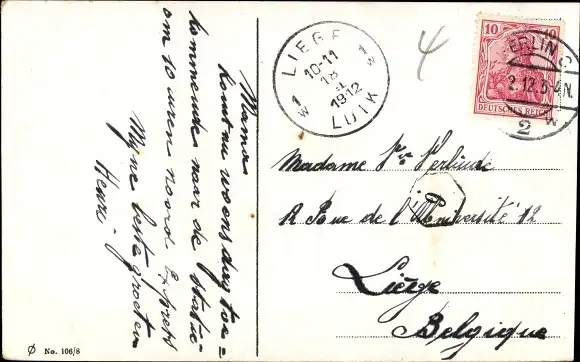 Mama
komt nu woensdag toe=
kommende naar de statie
om 10 uren noord Exprest
Myne beste groeten
Henri
LIEGE
1 1
10-11
18
1912
LUIK
4
10 10
DEUTSCHES REICH
BERLIN C
2.12.5-4N.
2
Madame
R Rue de l'Université 12
Liège
Belgique
No. 106/8